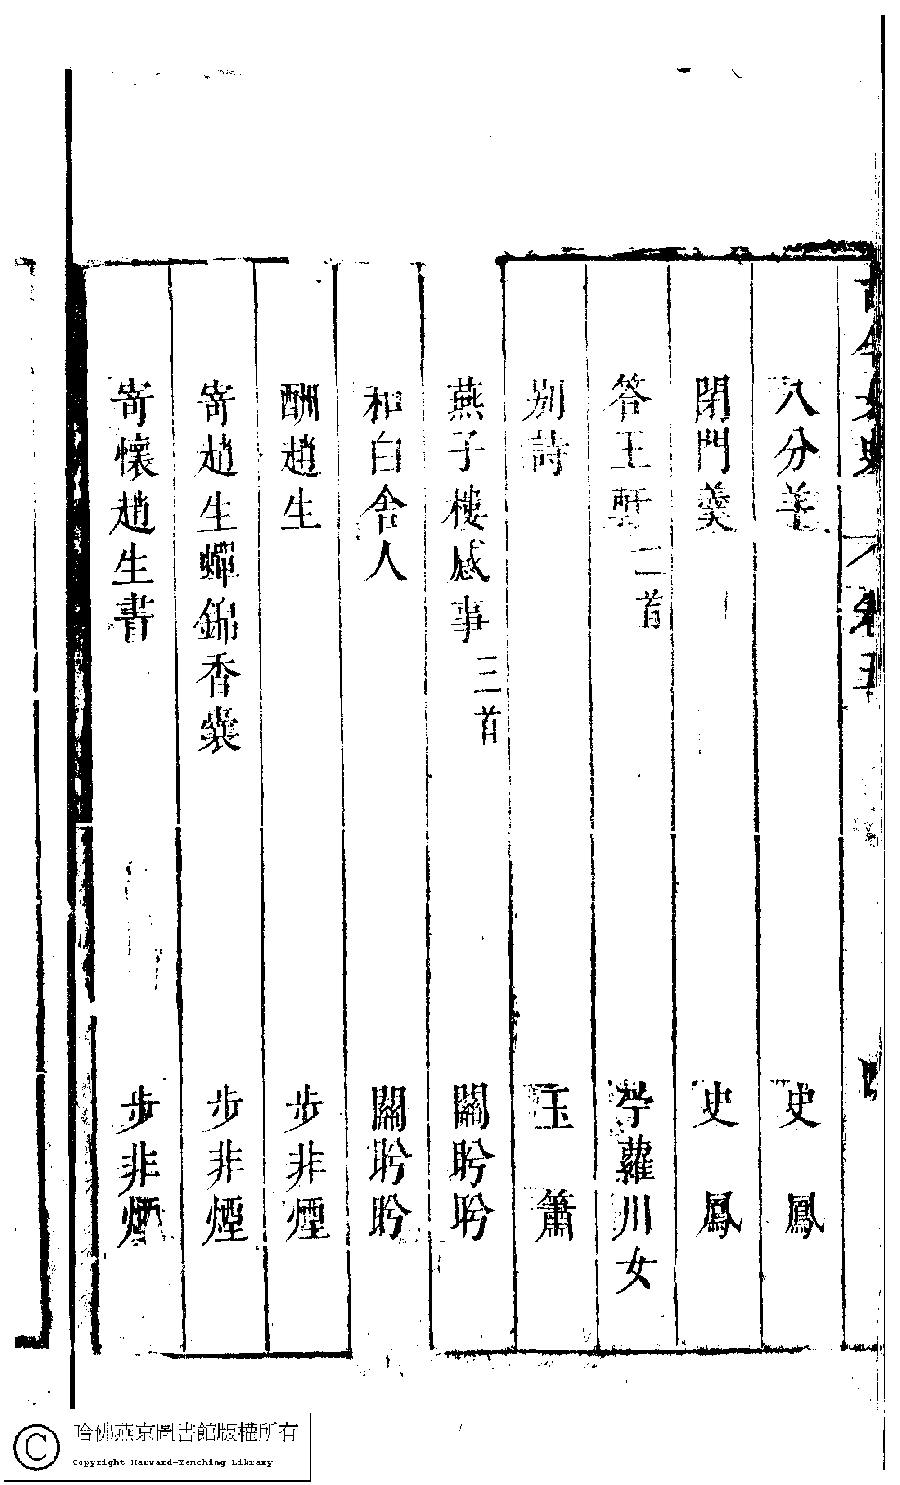 古今女史 卷五
八分羊 史鳳
閉門羹 史鳳
答王軒 二首 苧蘿川女
別詩 玉簫
燕子樓感事 三首 關盼盼
和白舍人 關盼盼
酬趙生 步非煙
寄趙生蟬錦香囊 步非煙
寄懷趙生書 步非煙
哈佛燕京圖書館版權所有
Copyright Harvard-Yenching Library